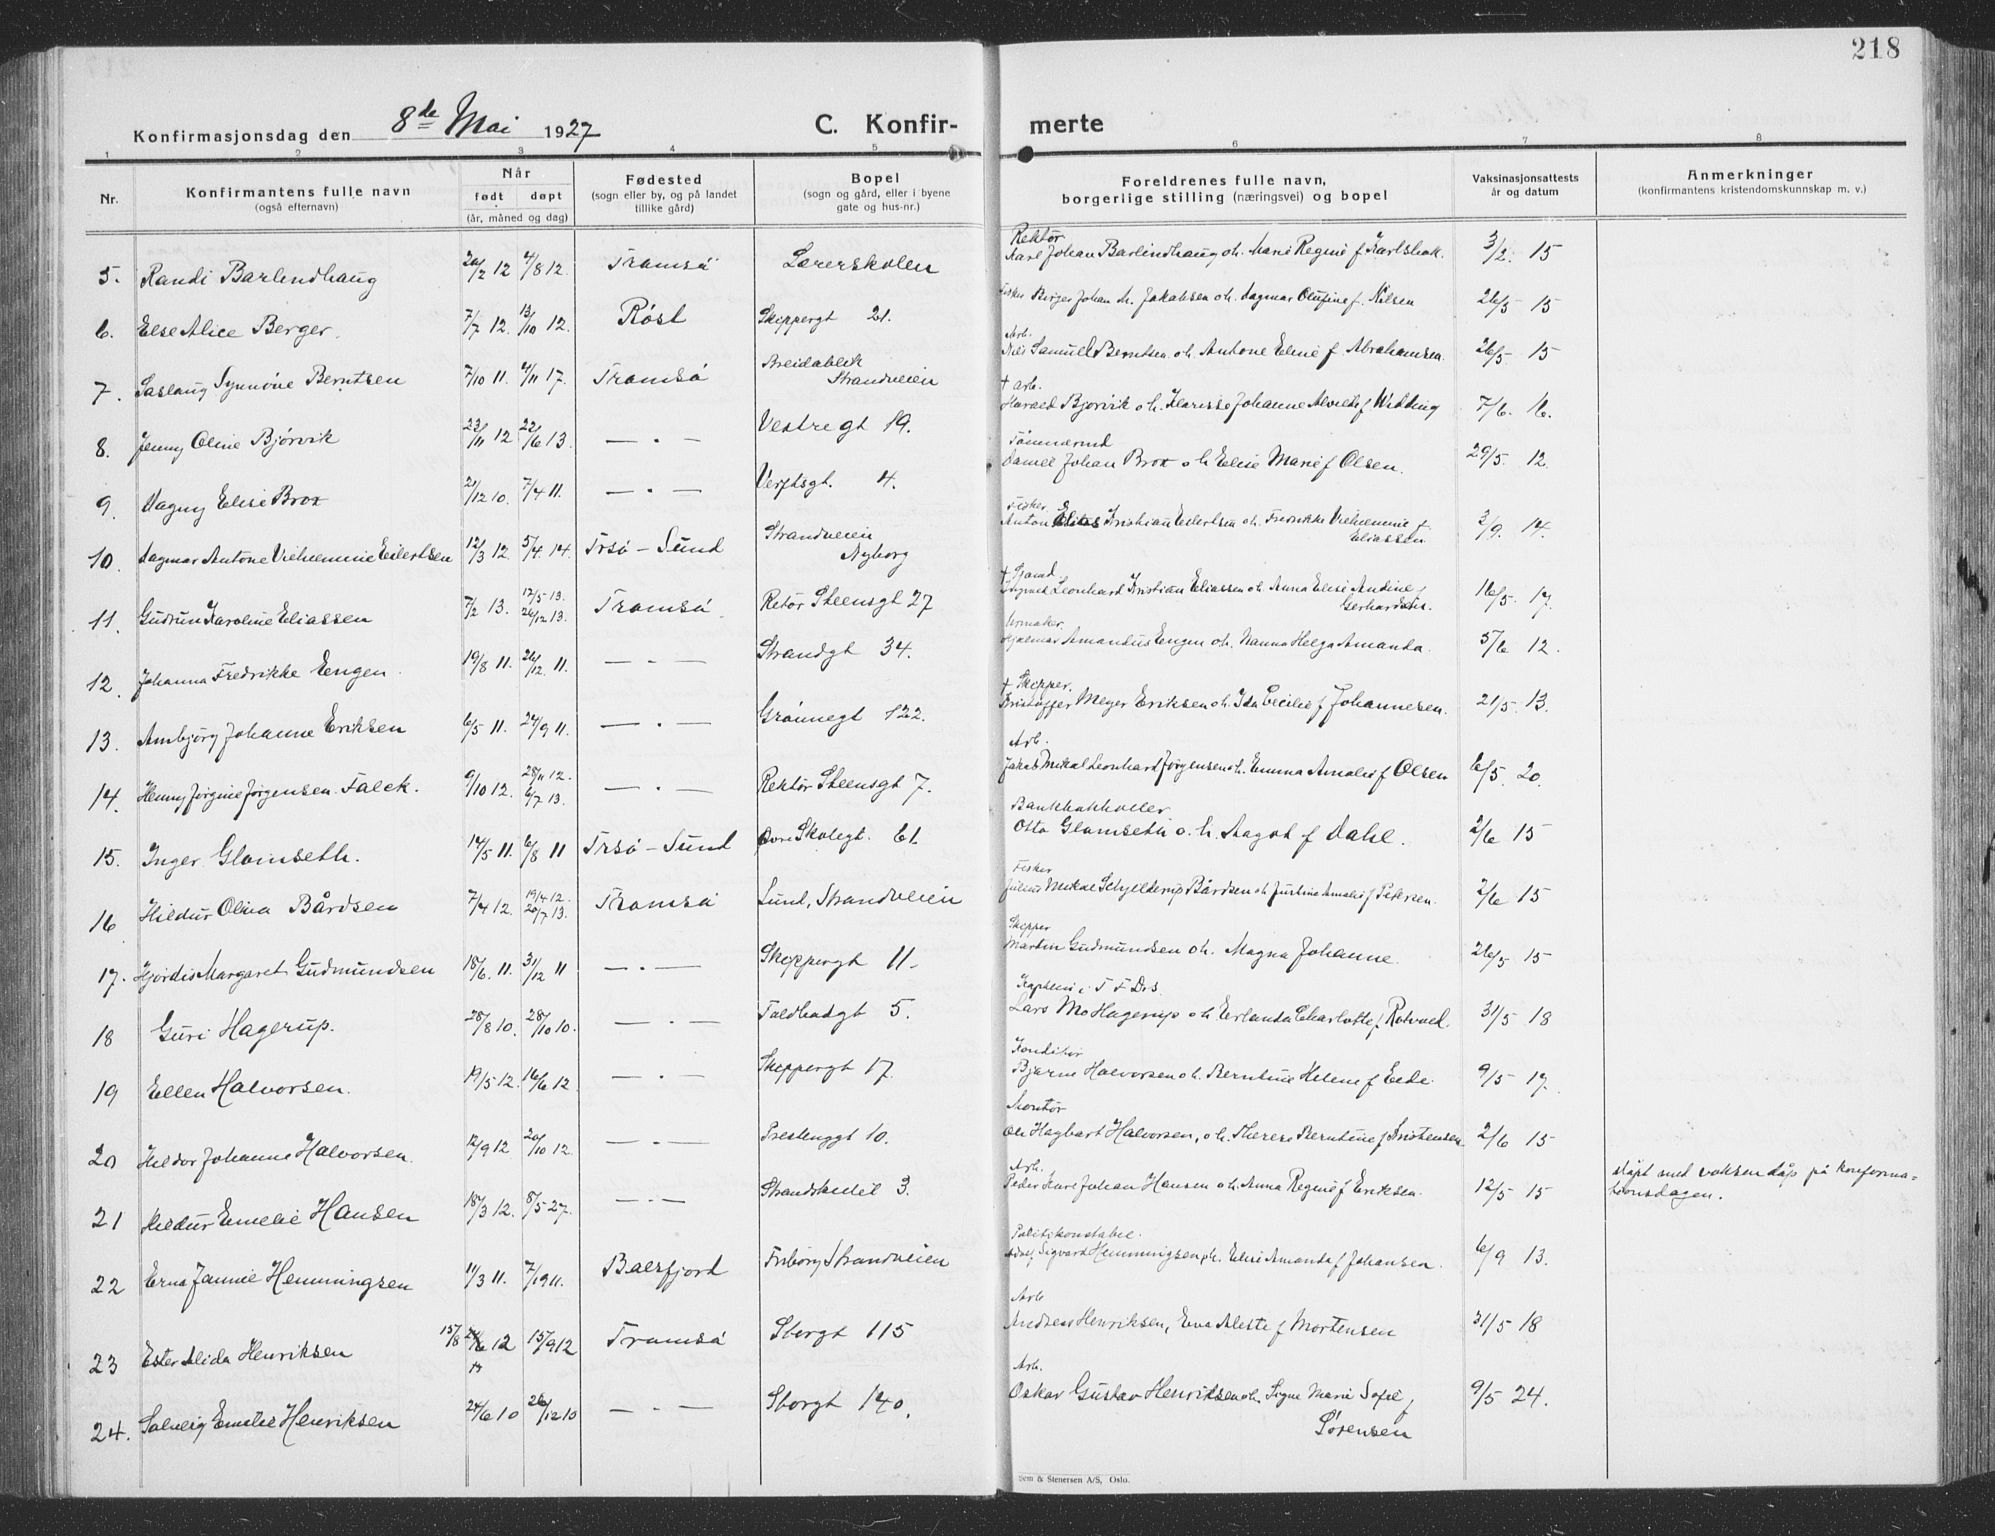 218
Konfirmasjonsdag den 8de Mai 1927
C. Konfir- merte
1 2 3 4 5 6 7 8
Nr.
Konfirmantens fulle navn
(også efternavn)
Når
født døpt
(år, måned og dag)
Fødested
(sogn eller by, og på landet
tillike gård)
Bopel
(sogn og gård, eller i byene
gate og hus-nr.)
Foreldrenes fulle navn,
borgerlige stilling (næringsvei) og bopel
Vaksinasjonsattests
år og datum
Anmerkninger
(konfirmantens kristendomskunnskap m. v.)
Rektør
5. Randi Barlindhaug 12 4/8 12. Tromsø Lærerskolen Karl Johan Barlindhaug o h. Marie Regine f Karlsbak. 3/2. 15
6. Else Alice Berger. 7/7 12. 13/10 12. Røst Skippergt 21. Fisker Birger Johan M. Jakobsen o h. Dagmar Olufine f. Nilsen 26/5 15
Arb.
7. Saslaug Synnøve Berntsen 7/10 11. 4/11 17. Tromsø Breidablik Strandveien Nils Samuel Berntsen o h. Antone Eline f. Abrahamsen. 26/5. 15
† arb.
8. Jenny Oline Bjørvik 23/11 12 22/6 13. — . — Vestregt 19. Harald Bjørvik o h. Klarisse Johanne Alvilde f Widding 7/6. 16.
Tømmermd
9. Dagny Elise Brox 21/12 10. 7/4 11. — . — Verftsgt. 4. Daniel Johan Brox o h Elise Marie f Olsen. 29/5. 12.
Fisker
10. Dagmar Antone Vilhelmine Eilertsen 12/3 12. 5/4. 14. Trsø – Sund Strandveien Nyborg Anton Kristian Eilertsen o h. Fredrikke Vilhelmine f. Eliassen 3/9. 14.
† Sjømd
11. Gudrun Karoline Eliassen 7/2 13. 17/5 13. 26/12 13. Tromsø Rektør Steensgt 27 Leonhard Kristian Eliassen o h Anna Elise Andine f Gerhardsen. 16/5. 17.
Urmaker
12. Johanna Fredrikke Eengen. 19/8 11. 26/12 11. — . — Strandgt 34. Hjalmar Amandus Eengen o h. Nanna Helga Amanda. 5/6 12.
† Skipper.
13. Ambjørg Johanne Eriksen 6/5 11. 24/9 11. — . — Grønnegt 122. Kristoffer Meyer Eriksen o h. Ida Cecilie f Johannesen. 21/5. 13.
Arb.
14. Henny Jørgine Jørgensen Falck. 9/10 12. 28/11 12. 6/7 13. — . — Rektør Steensgt 7. Jakob Mikal Leonhard Jørgensen o h. Emma Amalie f Olsen 6/5. 20.
Bankbokholder
15. Inger Glomseth. 14/5 11. 6/8 11 Trsø – Sund Øvre Skolegt. 61. Otto Glomseth o. h. Aagot f Dahl. 2/6 15
Fisker
16 Hildur Olina Bårdsen 7/4 12. 19/4 12. 20/7 13. Tromsø Sund, Strandveien Julius Mikal Schjelderup Bårdsen o h Justine Amalie f Petersen. 2/6 15
Skipper
17. Hjørdis Margaret Gudmundsen 18/6. 11. 31/12 11 — . — Skippergt 11. Martin Gudmundsen o h. Magna Johanne. 26/5 15
Kaptein i T F D.S.
18 Guri Hagerup. 28/8 10. 28/10 10. — . — Toldbodgt 5. Lars Mo Hagerup o h Erlanda Charlotte f Rotvold. 31/5 18
Konditor
19 Ellen Halvorsen. 19/5 12. 16/6 12. — . — Skippergt 17. Bjarne Halvorsen o h. Berntine Helene f Eide. 9/5 17.
Montør
20 Hildor Johanne Halvorsen. 12/9 12 20/10 12. — . — Prestenggt 10. Ole Hagbart Halvorsen, o h. Therese Berntine f Kristensen 2/6 15
Arb.
21 Hildur Emelie Hansen 18/3 12. 8/5 27. — . — Strandskillet 3. Peder Karl Johan Hansen o h. Anna Regine f Eriksen. 12/5 15 døpt med voksen dåp på konforma-
tionsdagen.
Politikonstabel.
22 Erna Jannie Hemmingsen 11/3 11. Balsfjord Friborg Strandveien Adolf Sigvart Hemmingsen o h. Elise Amanda f Johansen. 6/9 13.
Arb
23 Ester Alida Henriksen 15/8 12 15/9 12 Tromsø Storgt 115 Andreas Henriksen, Eva Aleste f Mortensen 31/5 18
Arb.
24. Solveig Emelie Henriksen 24/6 10 26/12 10 — . — Storgt 140. Oskar Gustav Henriksen o h. Signe Marie Sofie f Sørensen 9/5 24.
Sem & Stenersen A/S, Oslo.